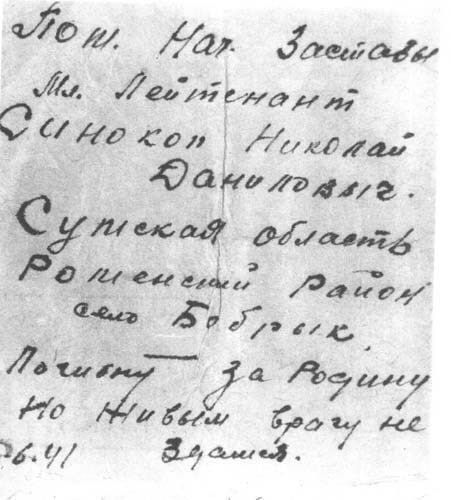 Пом. Нач. Заставы
Мл. Лейтенант
Синокоп Николай
Данилович.
Сумская область
Роменский Район
село Бобрык.
Погибну за Родину
но живым врагу не
6.41 здамся.